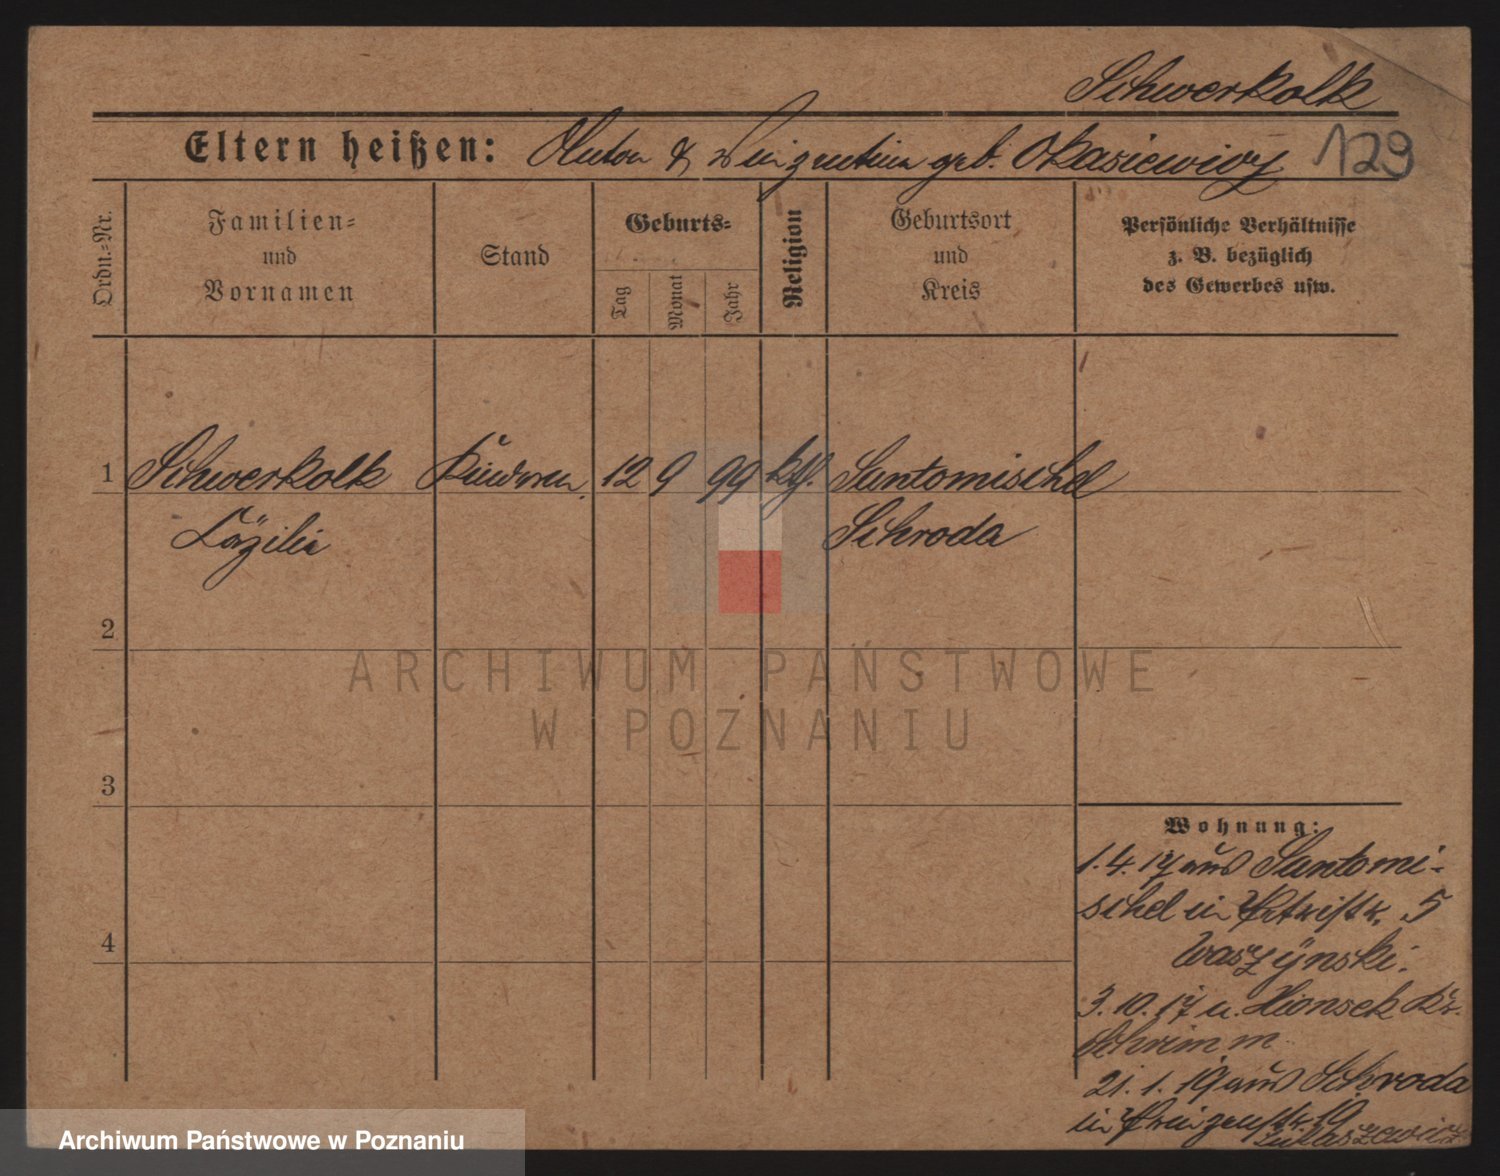 Schwerkolk
Eltern heißen: Anton & geb. Okasiewicz 129
Ordn.-Nr.
Familien-
und
Vornamen
Stand
Geburts-
Tag
Monat
Jahr
Religion
Geburtsort
und
Kreis
Persönliche Verhältnisse
z. B. bezüglich
des Gewerbes usw.
1 Schwerkolk 12 9 99 kth. Santomischel
Cäzilia Schroda
2
ARCHIWUM PAŃSTWOWE
W POZNANIU
3
4
Wohnung:
1.4.17 aus Santomi-
schel in 5
Waszÿnski.
3.10.17 n. Xionsek Kr.
Schrimm
21.1.19 aus Schroda
in Prinzenstr. 19
Lukaszewicz
Archiwum Państwowe w Poznaniu